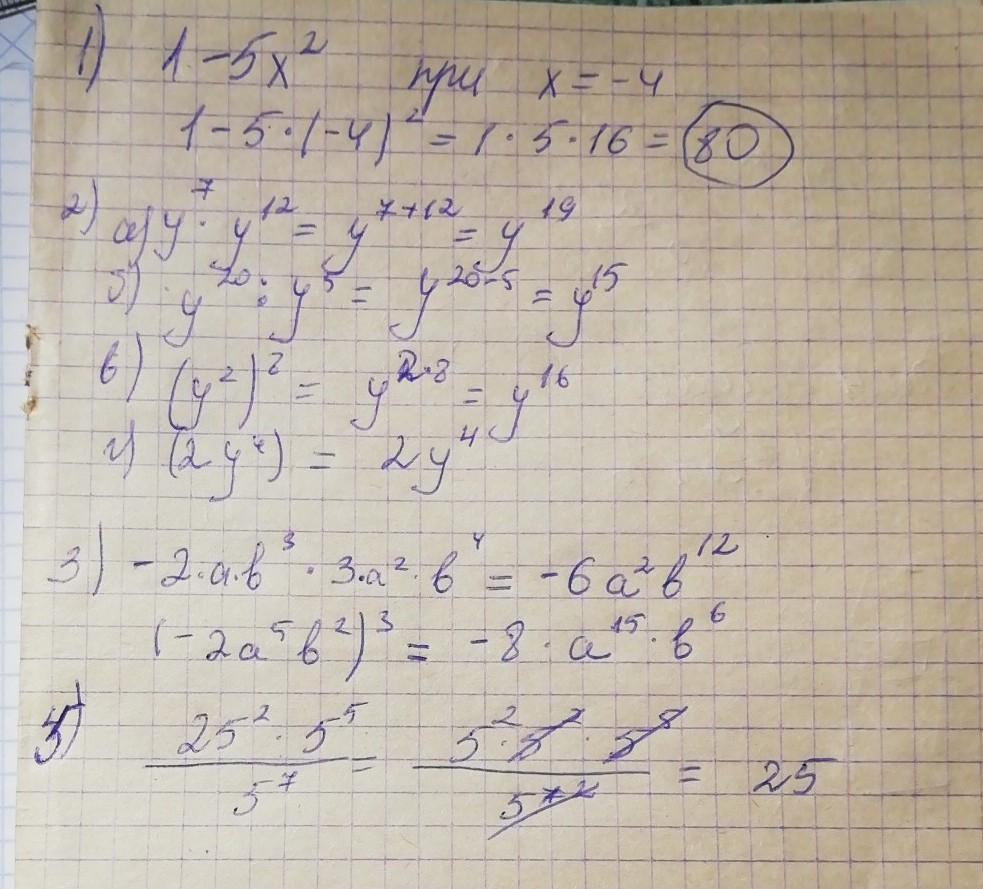 1) 1 - 5x² при x = -4
1 - 5 · (-4)² = 1 · 5 · 16 = 80
2) а) y⁷ · y¹² = y⁷⁺¹² = y¹⁹
б) y²⁰ : y⁵ = y²⁰⁻⁵ = y¹⁵
в) (y²)⁸ = y²·⁸ = y¹⁶
г) (2y⁴) = 2y⁴
3) -2·a·b³ · 3·a²·b⁴ = -6a²b¹²
(-2a⁵b²)³ = -8 · a¹⁵ · b⁶
25² · 5⁵ / 5⁷ = = 25